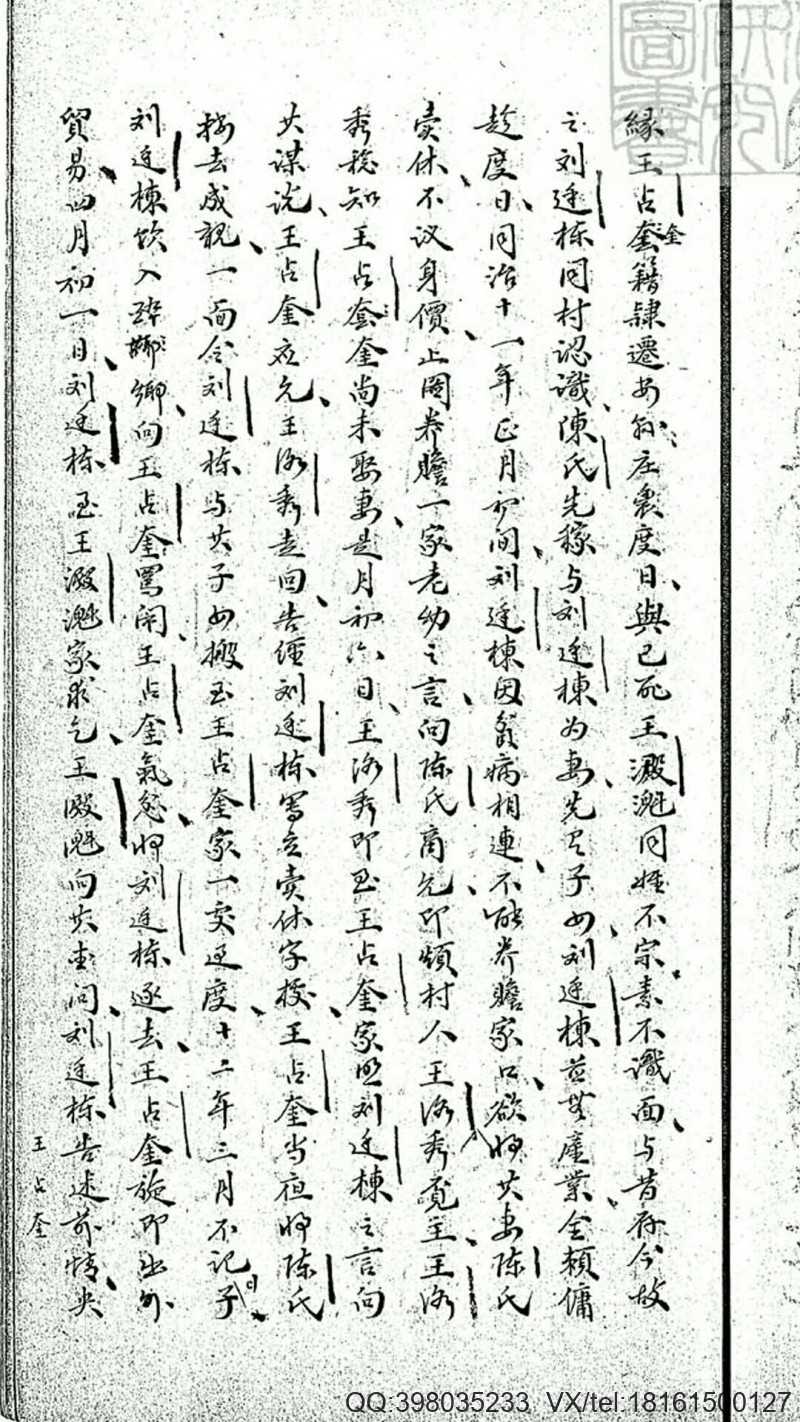 緣王占奎籍隸遷安務庄農度日與已死王殿魁同姓不宗素不識面与昔存今故
奎
之刘廷栋同村認識陳氏先稼与刘廷棟为妻先生子女刘廷棟並無產業全頼傭
趁度日同治十一年正月初间刘廷棟因貧病相連不能养贍家口欲将其妻陳氏
卖休不议身價止圖养贍一家老幼之言向陈氏商允即煩村人王洛秀覓主王洛
秀稔知王占奎尚未娶妻是月初六日王洛秀即至王占奎家照刘廷棟之言向
其谋说王占奎应允王洛秀走回告经刘廷栋写立卖休字授王占奎当夜将陈氏
接去成親一面令刘廷栋与其子女搬至王占奎家一处过度十二年三月不记
日子
刘廷棟饮入醉鄉向王占奎罵闹王占奎氣忿将刘廷栋逐去王占奎旋即出外
貿易四月初一日刘廷栋至王殿魁家求乞王殿魁向其查问刘廷栋告述前情央
王占奎
圖書
QQ:398035233 VX/tel:18161500127